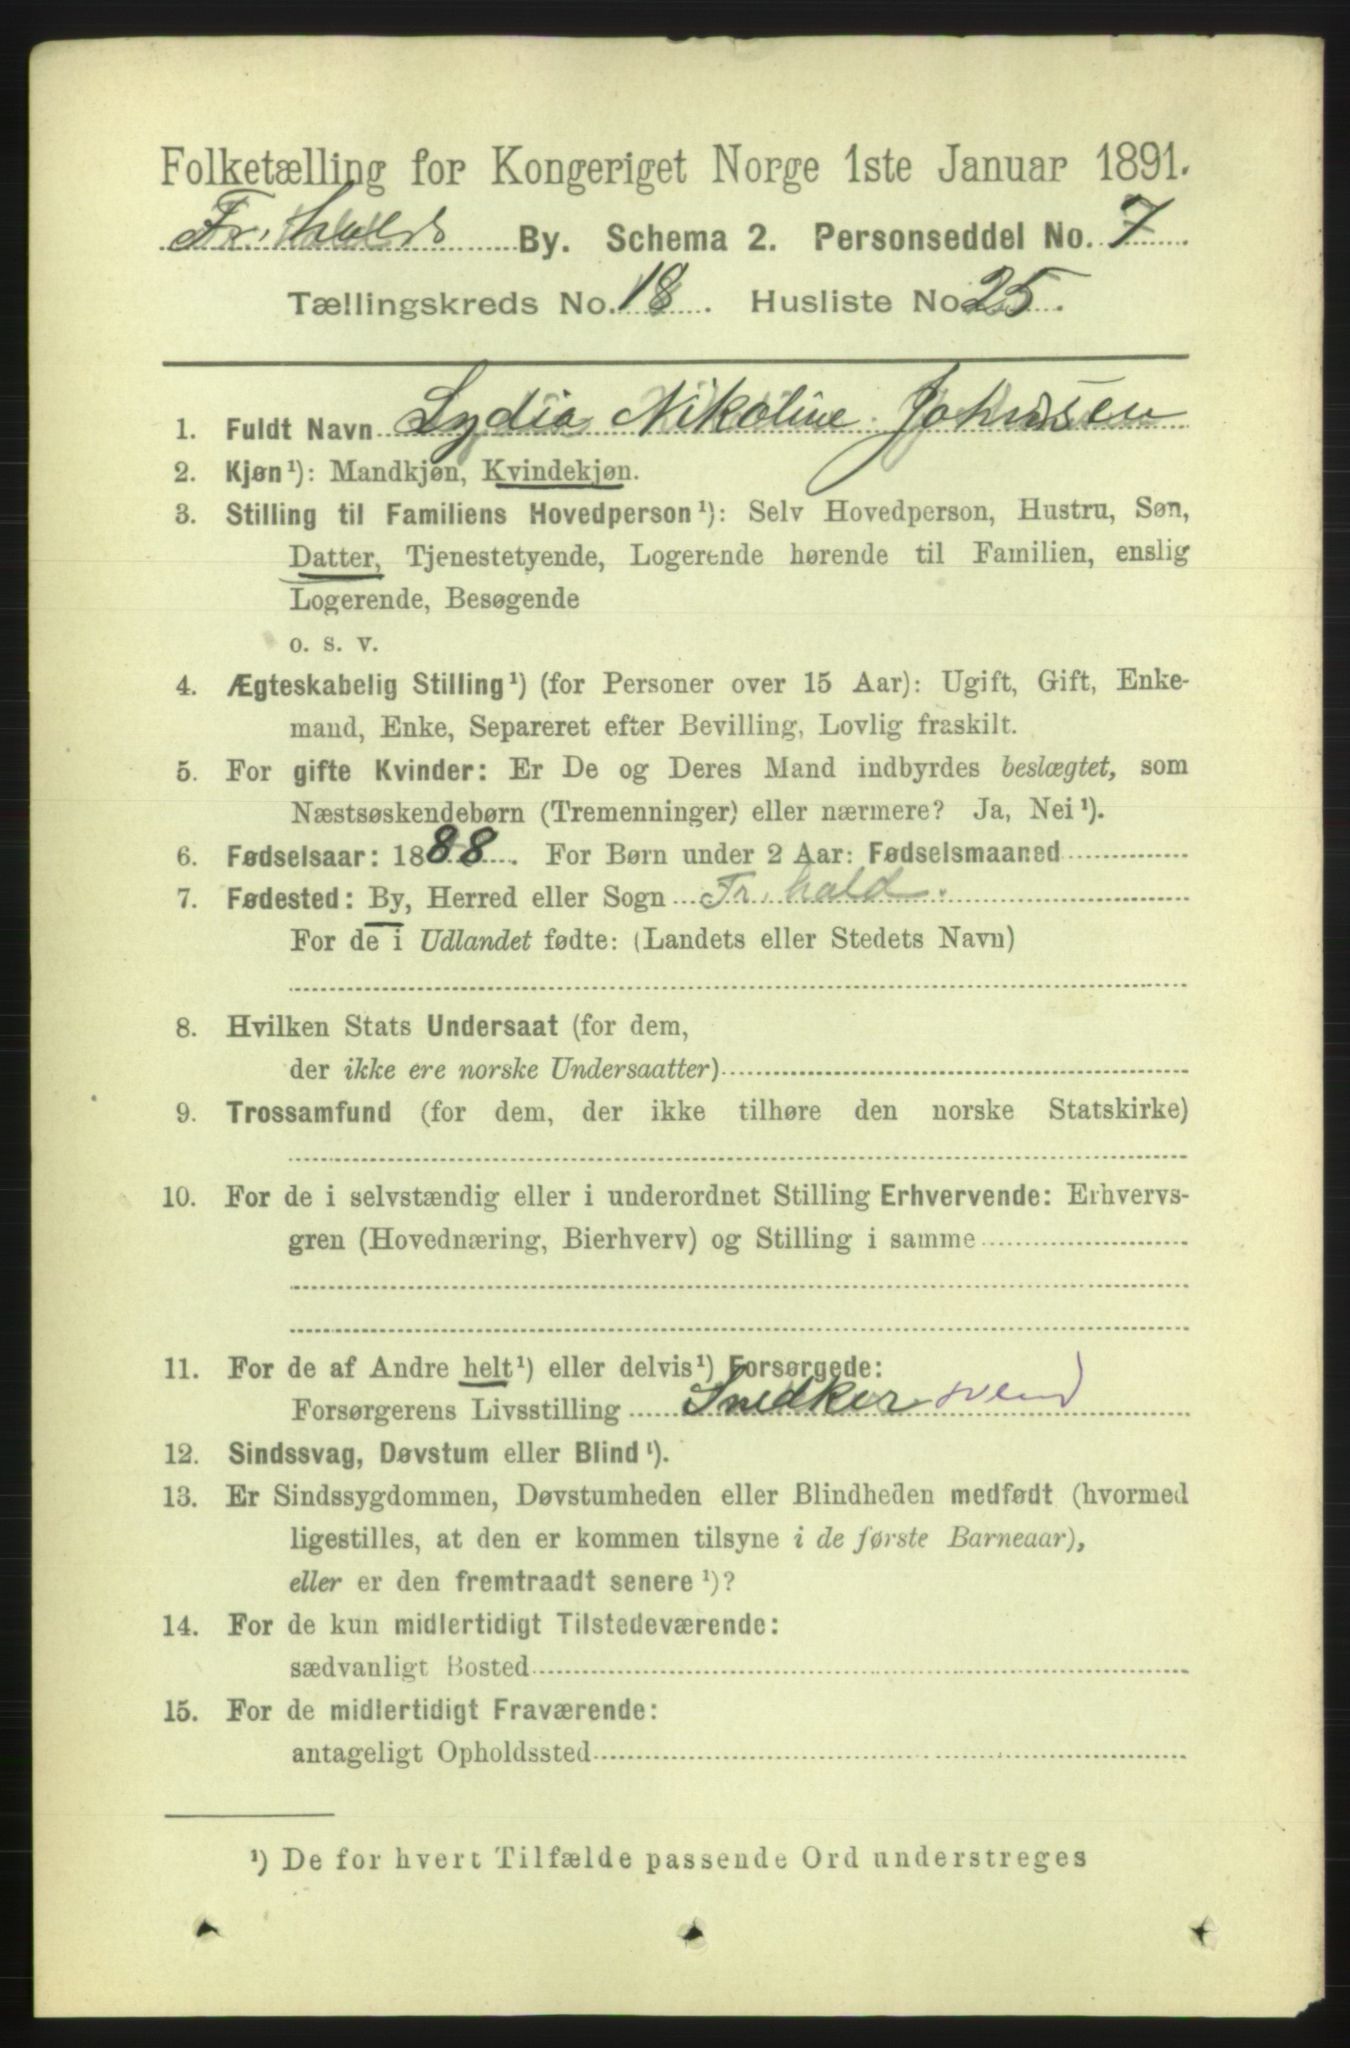 Folketælling for Kongeriget Norge 1ste Januar 1891.
Fr.hald By. Schema 2. Personseddel No. 7
Tællingskreds No. 18. Husliste No. 25.
1. Fuldt Navn Lydia Nikoline Johnsen
2. Kjøn¹): Mandkjøn, Kvindekjøn.
3. Stilling til Familiens Hovedperson¹): Selv Hovedperson, Hustru, Søn,
Datter, Tjenestetyende, Logerende hørende til Familien, enslig
Logerende, Besøgende
o. s. v.
4. Ægteskabelig Stilling¹) (for Personer over 15 Aar): Ugift, Gift, Enke-
mand, Enke, Separeret efter Bevilling, Lovlig fraskilt.
5. For gifte Kvinder: Er De og Deres Mand indbyrdes beslægtet, som
Næstsøskendebørn (Tremenninger) eller nærmere? Ja, Nei¹).
6. Fødselsaar: 1888. For Børn under 2 Aar: Fødselsmaaned
7. Fødested: By, Herred eller Sogn Fr.hald.
For de i Udlandet fødte: (Landets eller Stedets Navn)
8. Hvilken Stats Undersaat (for dem,
der ikke ere norske Undersaatter)
9. Trossamfund (for dem, der ikke tilhøre den norske Statskirke)
10. For de i selvstændig eller i underordnet Stilling Erhvervende: Erhvervs-
gren (Hovednæring, Bierhverv) og Stilling i samme
11. For de af Andre helt¹) eller delvis¹) Forsørgede:
Forsørgerens Livsstilling Snedker svend
12. Sindssvag, Døvstum eller Blind¹).
13. Er Sindssygdommen, Døvstumheden eller Blindheden medfødt (hvormed
ligestilles, at den er kommen tilsyne i de første Barneaar),
eller er den fremtraadt senere¹)?
14. For de kun midlertidigt Tilstedeværende:
sædvanligt Bosted
15. For de midlertidigt Fraværende:
antageligt Opholdssted
¹) De for hvert Tilfælde passende Ord understreges